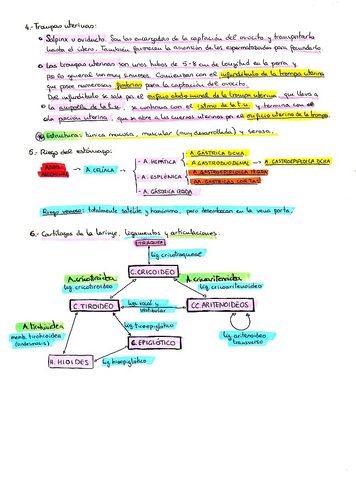 4.- Trompas uterinas:
Salpinx u oviducto. Son las encargadas de la captación del ovocito y transportarlo
hasta el útero. También favorecen la ascensión de los espermatozoides para fecundarlo.
Las trompas uterinas son unos tubos de 5-8 cm de longitud en la perra y
por lo general son muy sinuosas. Comienzan con el infundíbulo de la trompa uterina
que posee numerosas fimbrias para la captación del ovocito.
Del infundíbulo se sale por el orificio abdominal de la trompa uterina, que lleva a
la ampolla de la t.u., se continúa con el istmo de la t.u. y termina con
la porción uterina, que se abre a los cuernos uterinos por el orificio uterino de la trompa.
Estructura: túnica mucosa, muscular (muy desarrollada) y serosa.
5.- Riego del estómago:
A. CELÍACA
- A. HEPÁTICA
- A. ESPLÉNICA
- A. GÁSTRICA IZQDA
A. GÁSTRICA DCHA.
A. GASTRODUODENAL
A. GASTROEPIPLOICA DCHA
A. GASTROEPIPLOICA IZQDA
AA. GÁSTRICAS CORTAS
Riego venoso: totalmente satélite y homónimo, pero desembocan en la vena porta.
6.- Cartílagos de la laringe, ligamentos y articulaciones.
TRÁQUEA
lig. cricotraqueal
C. CRICOIDEO
A. cricotiroidea
lig. cricotiroideo
A. cricoaritenoidea
lig. cricoaritenoideo
C. TIROIDEO
lig. vocal y
vestibular
CC. ARITENOIDEOS
A. tirohioidea
memb. tirohioidea
lig. tiroepiglótico
C. EPIGLÓTICO
lig. aritenoideo
transverso
H. HIOIDES
lig. hioepiglótico